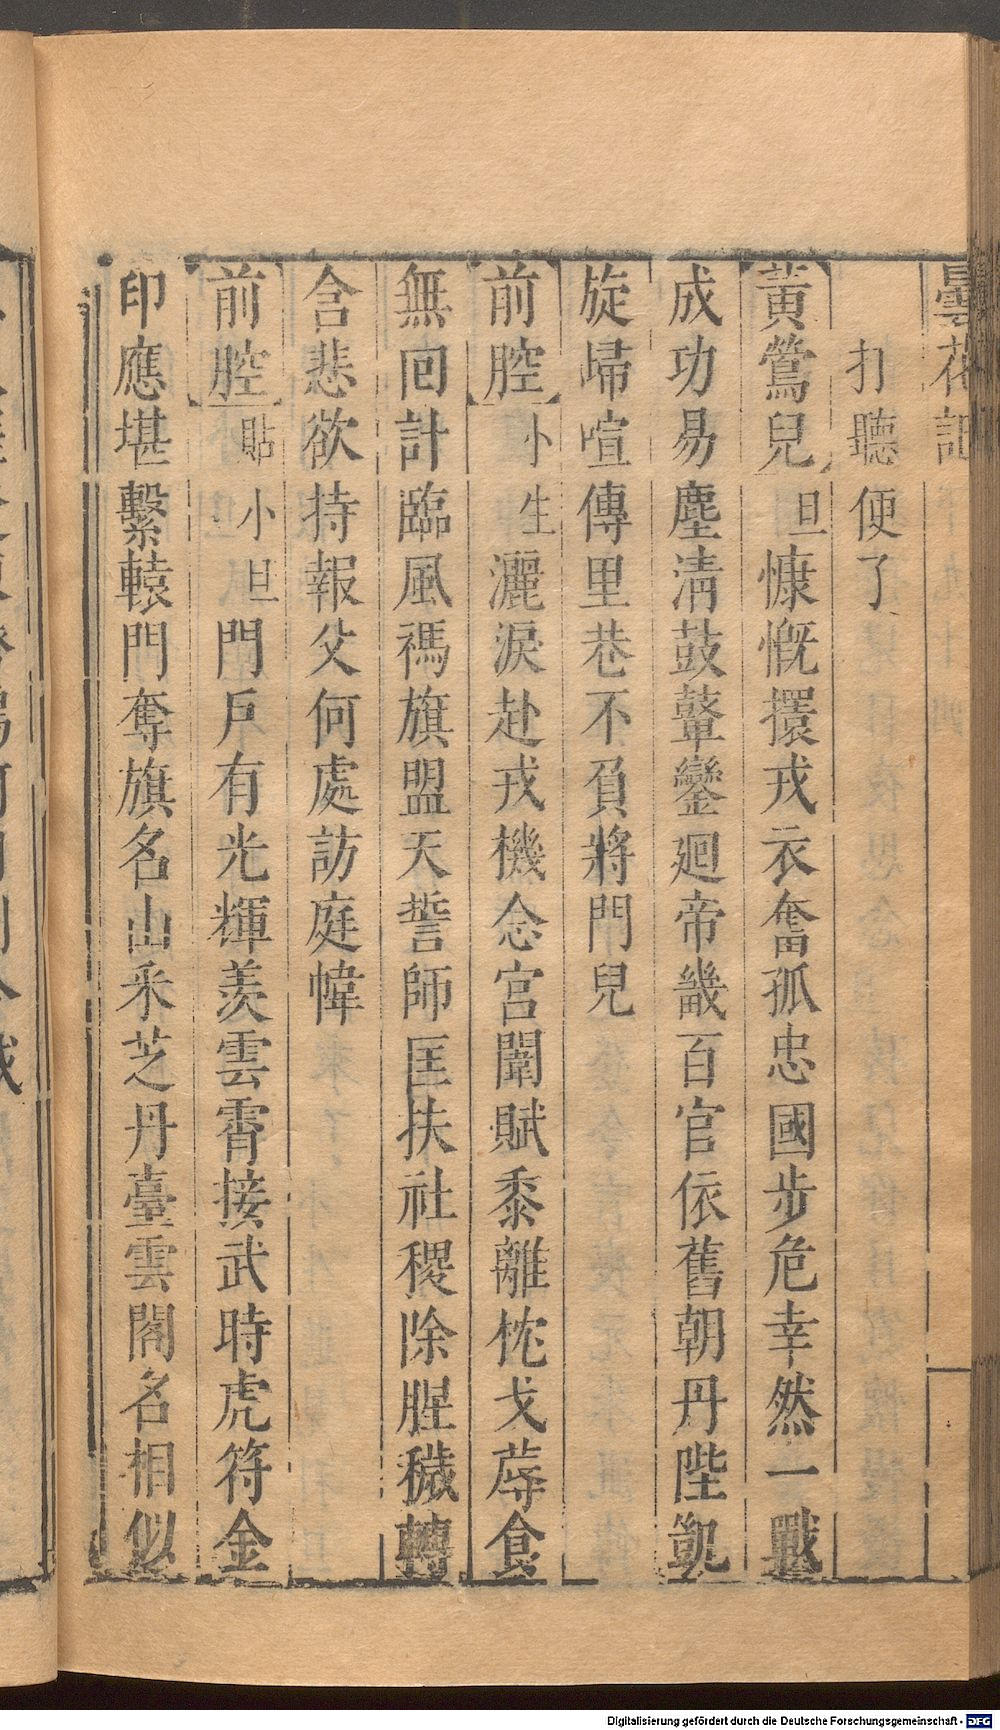 曇花記
打聽便了
黃鶯兒 旦 慷慨擐戎衣奮孤忠國步危幸然一戰
成功易塵清鼓鼙鑾廻帝畿百官依舊朝丹陛凱
旋歸喧傳里巷不負將門兒
前腔 小生 灑淚赴戎機念宮闈賦黍離枕戈蓐食
無回計臨風禡旗盟天誓師匡扶社稷除腥穢轉
含悲欲持報父何處訪庭幃
前腔 貼 小旦 門戶有光輝羨雲霄接武時虎符金
印應堪繫轅門奪旗名山采芝丹臺雲閣名相似
Digitalisierung gefördert durch die Deutsche Forschungsgemeinschaft - DFG